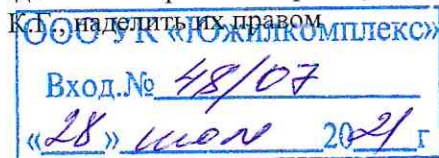 К.Г., наделить их правом
ООО УК «Южилкомплекс»
Вход.№ 48/07
«28» июля 2021 г